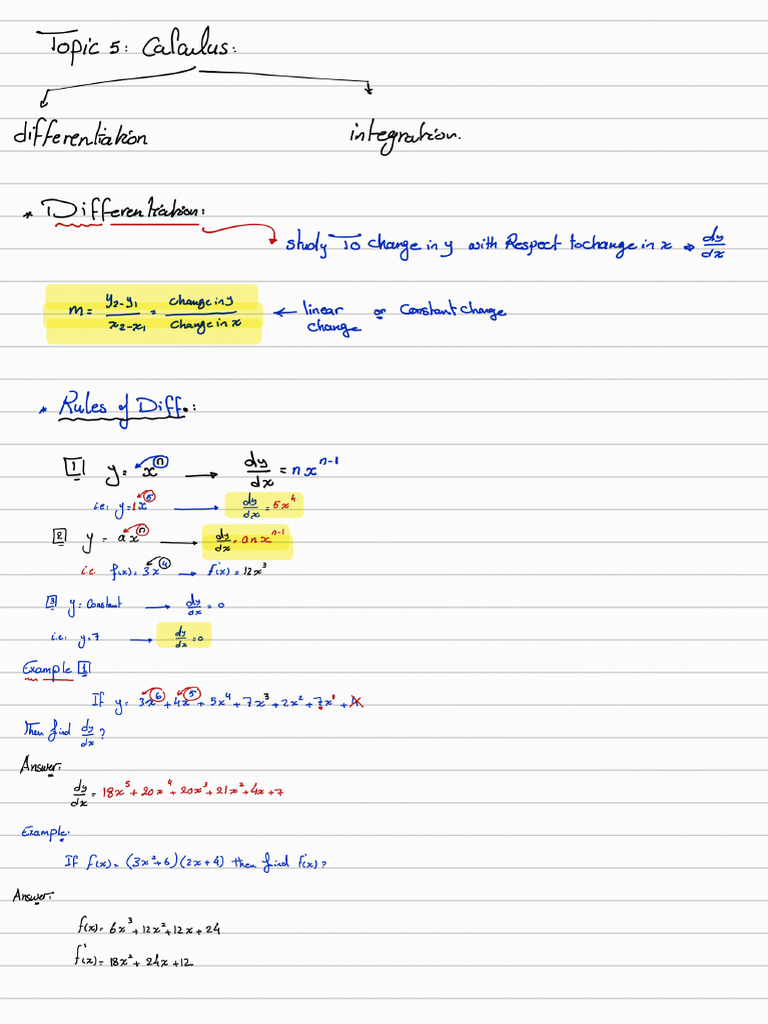 Topic 5: Calculus:
differentiation integration.
* Differentiation:
study To change in y with Respect to change in x ⇒ dy/dx
m = y₂-y₁/x₂-x₁ = change in y/change in x ← linear change or Constant change
* Rules of Diff.:
1 y = xⁿ → dy/dx = nxⁿ⁻¹
i.e: y = 1x⁵ → dy/dx = 5x⁴
2 y = axⁿ → dy/dx = anxⁿ⁻¹
i.e. f(x) = 3x⁴ → f'(x) = 12x³
3 y = Constant → dy/dx = 0
i.e: y = 7 → dy/dx = 0
Example 1
If y = 3x⁶ + 4x⁵ + 5x⁴ + 7x³ + 2x² + 7x¹ + 4
Then find dy/dx ?
Answer:
dy/dx = 18x⁵ + 20x⁴ + 20x³ + 21x² + 4x + 7
Example:
If f(x) = (3x²+6)(2x+4) then find f'(x) ?
Answer:
f(x) = 6x³ + 12x² + 12x + 24
f'(x) = 18x² + 24x + 12